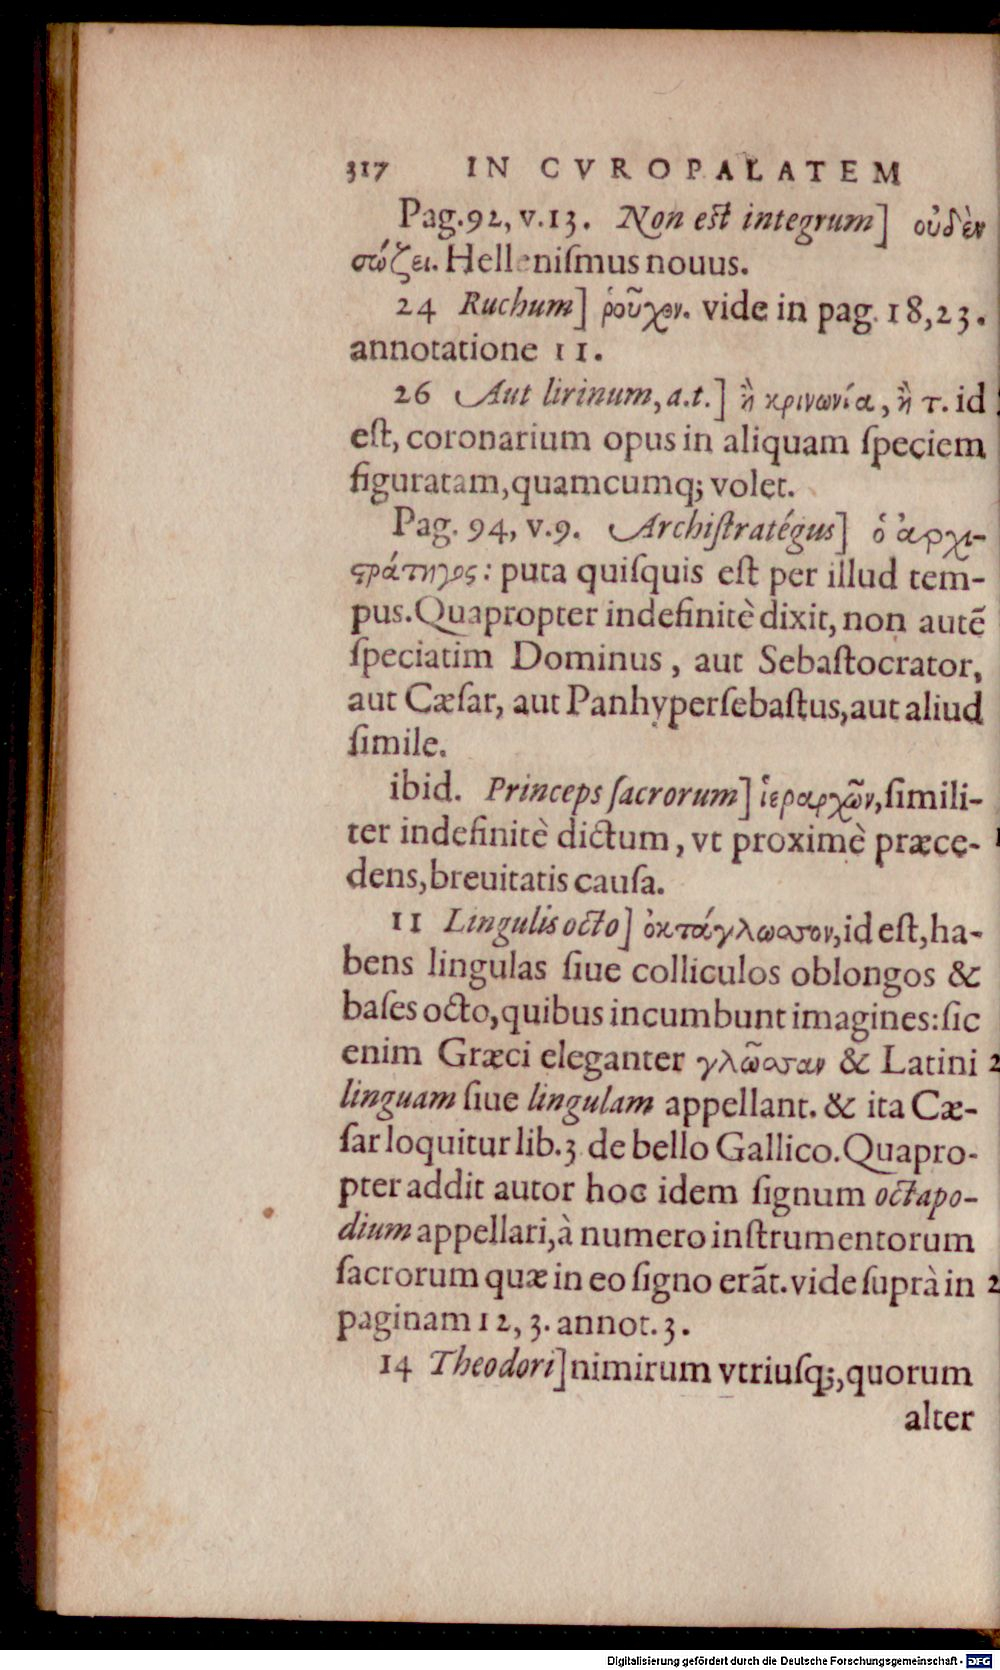 317 IN CVROPALATEM
Pag.92, v.13. Non est integrum] οὐδὲν
σώζει. Helleniſmus nouus.
24 Ruchum] ῥοῦχον. vide in pag. 18,23.
annotatione 11.
26 Aut lirinum, a.t.] ἢ κρινωνία, ἢ τ. id
eſt, coronarium opus in aliquam ſpeciem
figuratam, quamcumq; volet.
Pag. 94, v.9. Archiſtratégus] ὁ ἀρχι-
ϛράτηγος: puta quiſquis eſt per illud tem-
pus. Quapropter indefinitè dixit, non autē
ſpeciatim Dominus, aut Sebaſtocrator,
aut Cæſar, aut Panhyperſebaſtus, aut aliud
ſimile.
ibid. Princeps ſacrorum] ἱεραρχῶν, ſimili-
ter indefinitè dictum, vt proximè præce-
dens, breuitatis cauſa.
11 Lingulis octo] ὀκτάγλωσσον, id eſt, ha-
bens lingulas ſiue colliculos oblongos &
baſes octo, quibus incumbunt imagines: ſic
enim Græci eleganter γλῶσσαν & Latini
linguam ſiue lingulam appellant. & ita Cæ-
ſar loquitur lib.3 de bello Gallico. Quapro-
pter addit autor hoc idem ſignum octapo-
dium appellari, à numero inſtrumentorum
ſacrorum quæ in eo ſigno erāt. vide ſuprà in
paginam 12, 3. annot. 3.
14 Theodori] nimirum vtriuſq;, quorum
alter
Digitalisierung gefördert durch die Deutsche Forschungsgemeinschaft - DFG